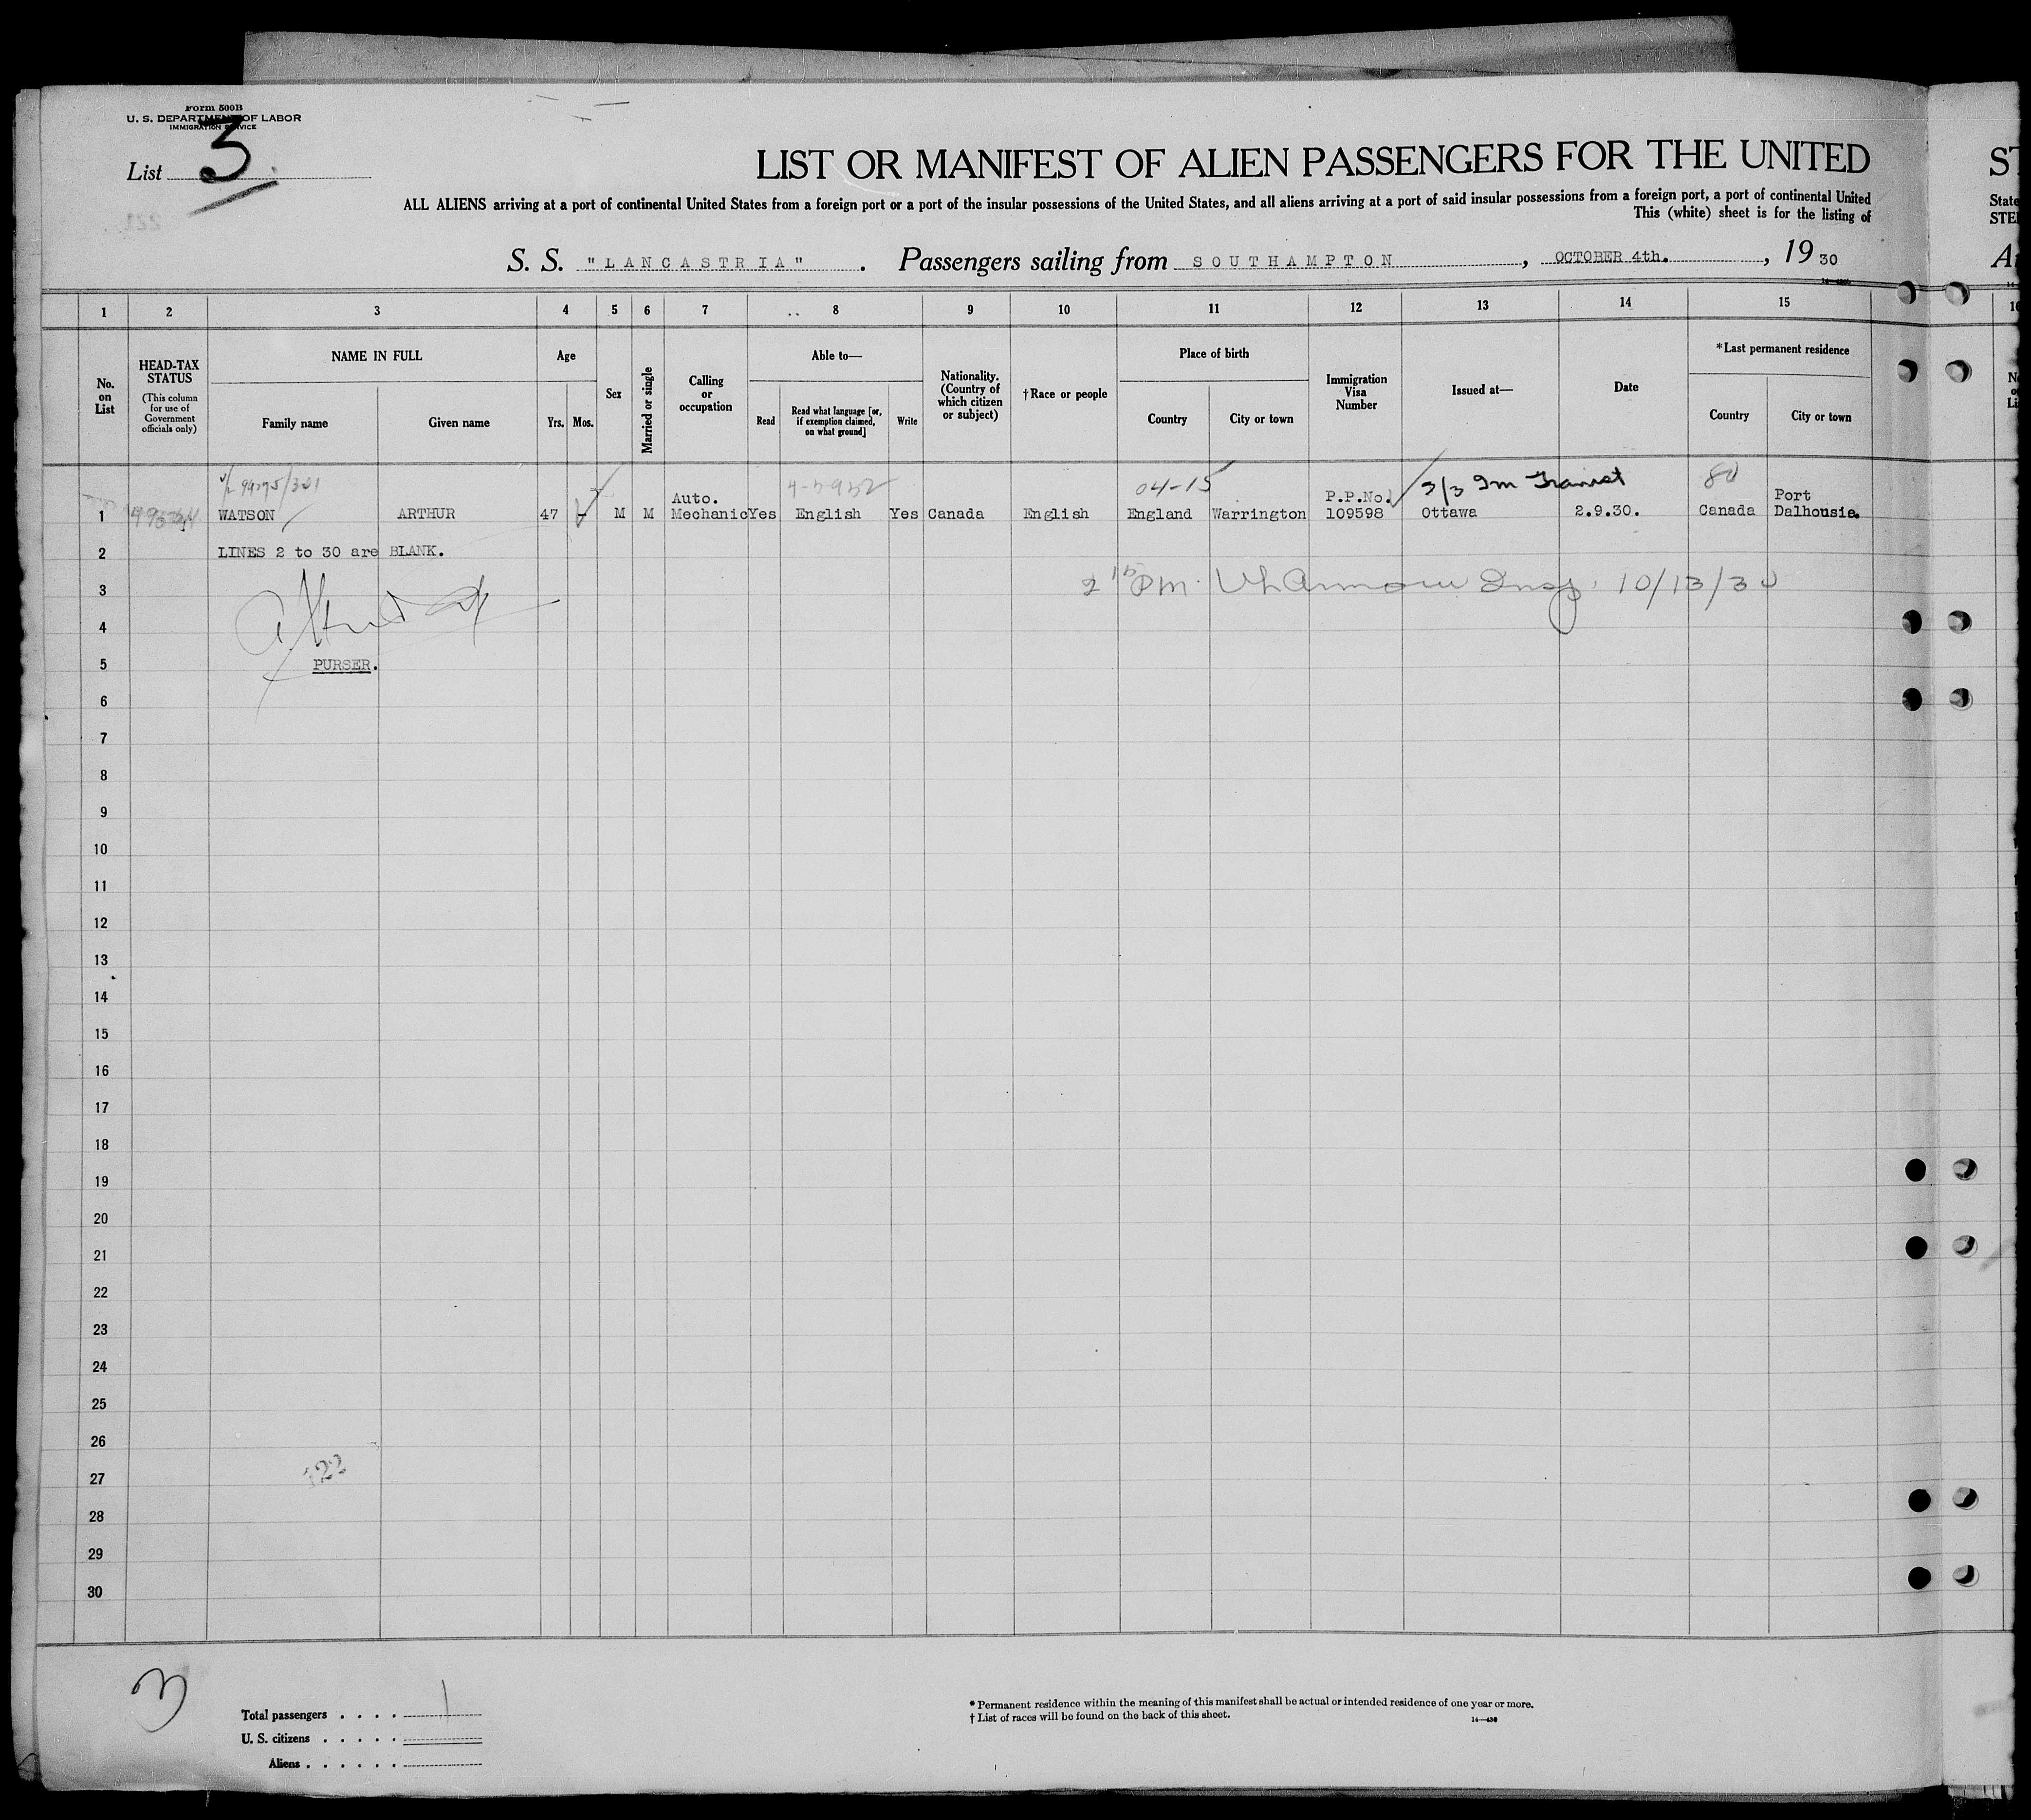 Form 500B
U. S. DEPARTMENT OF LABOR
IMMIGRATION SERVICE
List 3
LIST OR MANIFEST OF ALIEN PASSENGERS FOR THE UNITED
ALL ALIENS arriving at a port of continental United States from a foreign port or a port of the insular possessions of the United States, and all aliens arriving at a port of said insular possessions from a foreign port, a port of continental United
This (white) sheet is for the listing of
S. S. "LANCASTRIA". Passengers sailing from SOUTHAMPTON, OCTOBER 4th., 1930
1 2 3 4 5 6 7 8 9 10 11 12 13 14 15
No. on List
HEAD-TAX STATUS (This column for use of Government officials only)
NAME IN FULL
Family name Given name
Age
Yrs. Mos.
Sex
Married or single
Calling or occupation
Able to—
Read Read what language [or, if exemption claimed, on what ground] Write
Nationality. (Country of which citizen or subject)
†Race or people
Place of birth
Country City or town
Immigration Visa Number
Issued at—
Date
*Last permanent residence
Country City or town
04-15 3/3 Im Transit 80
1 WATSON ARTHUR 47 - M M Auto. Mechanic Yes English Yes Canada English England Warrington P.P.No. 109598 Ottawa 2.9.30. Canada Port Dalhousie.
2 LINES 2 to 30 are BLANK.
3 2 15 PM. Insp. 10/13/30
4
5 PURSER.
6
7
8
9
10
11
12
13
14
15
16
17
18
19
20
21
22
23
24
25
26
27
28
29
30
122
3
Total passengers . . . . 1
U. S. citizens . . . . .
Aliens . . . . . .
* Permanent residence within the meaning of this manifest shall be actual or intended residence of one year or more.
† List of races will be found on the back of this sheet.
14—430